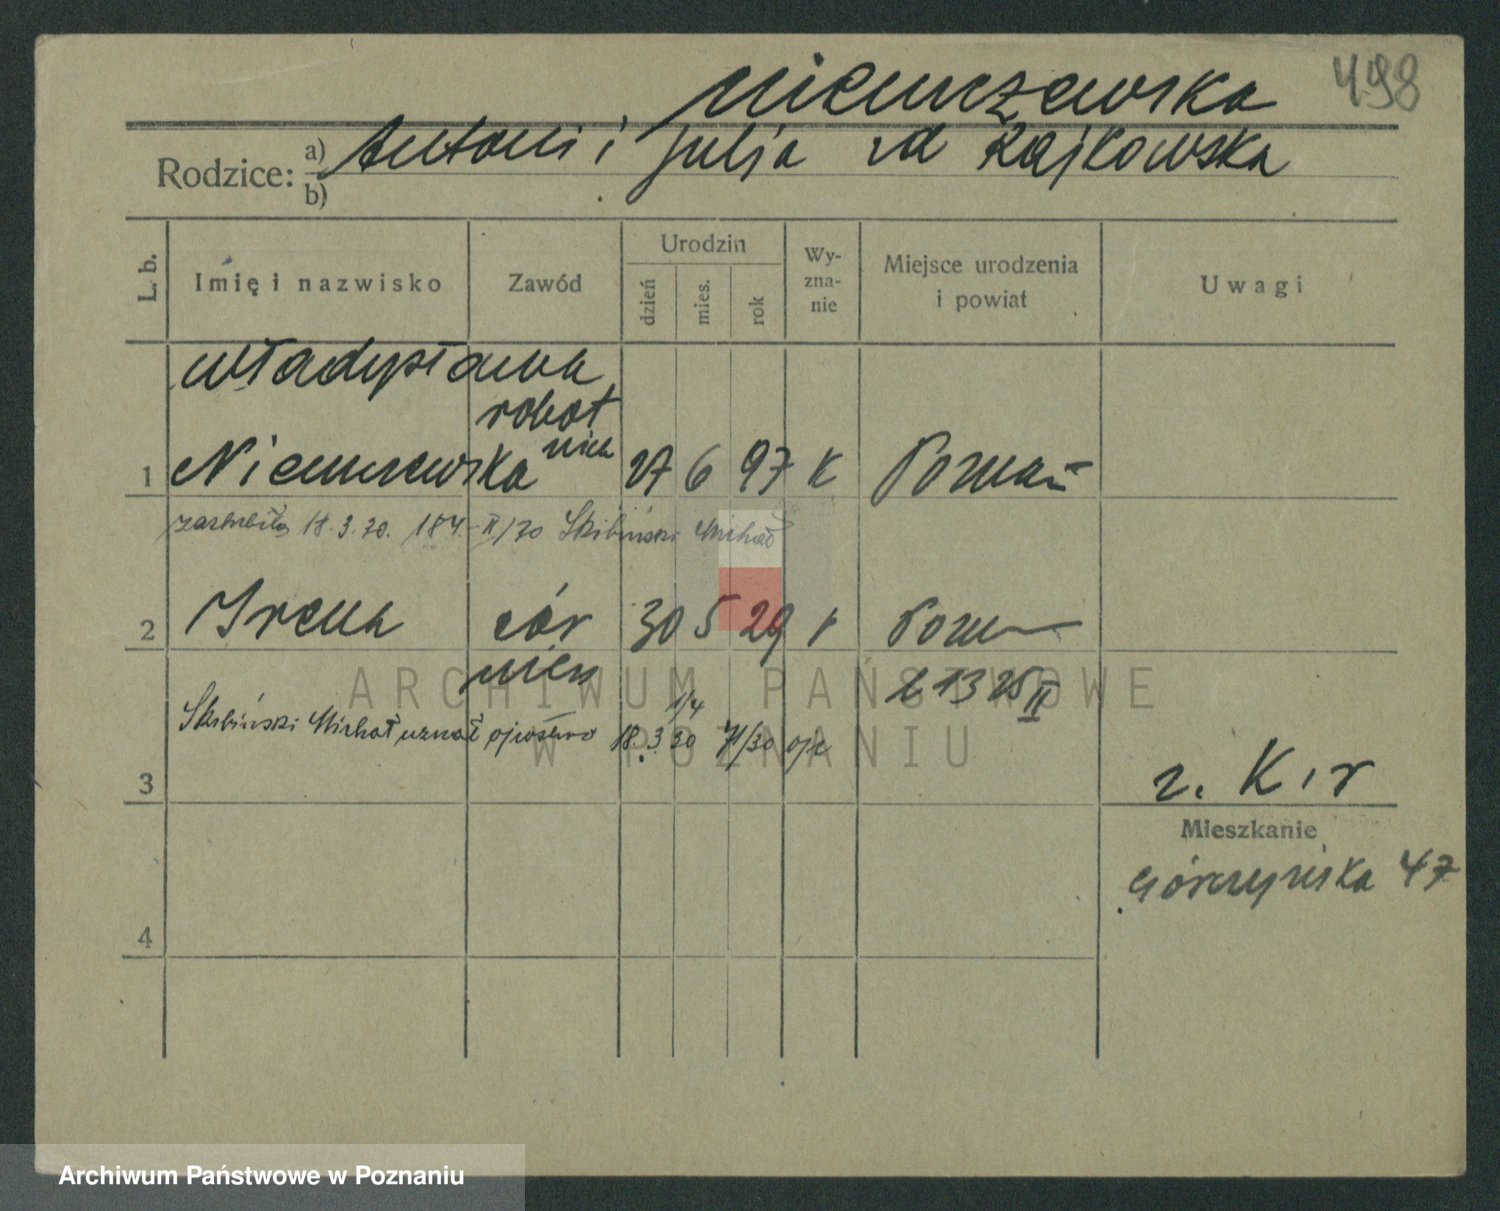 498
Niemczewska
Rodzice: a) Antoni i Julja zd Rajkowska
b)
L. b. Imię i nazwisko Zawód Urodzin dzień mies. rok Wyznanie Miejsce urodzenia i powiat Uwagi
Władysława
robot
1 Niemczewska nica 27 6 97 K Poznań
zaślubiła 18.3.30. 184 II/30 Skibiński Michał
2 Irena cór 30 5 29 k Pozn
nieśl 1325 II
Skibiński Michał uznał ojcostwo 18.3 30
3
r. K.
Mieszkanie
Górczyńska 47
4
ARCHIWUM PAŃSTWOWE
W POZNANIU
Archiwum Państwowe w Poznaniu